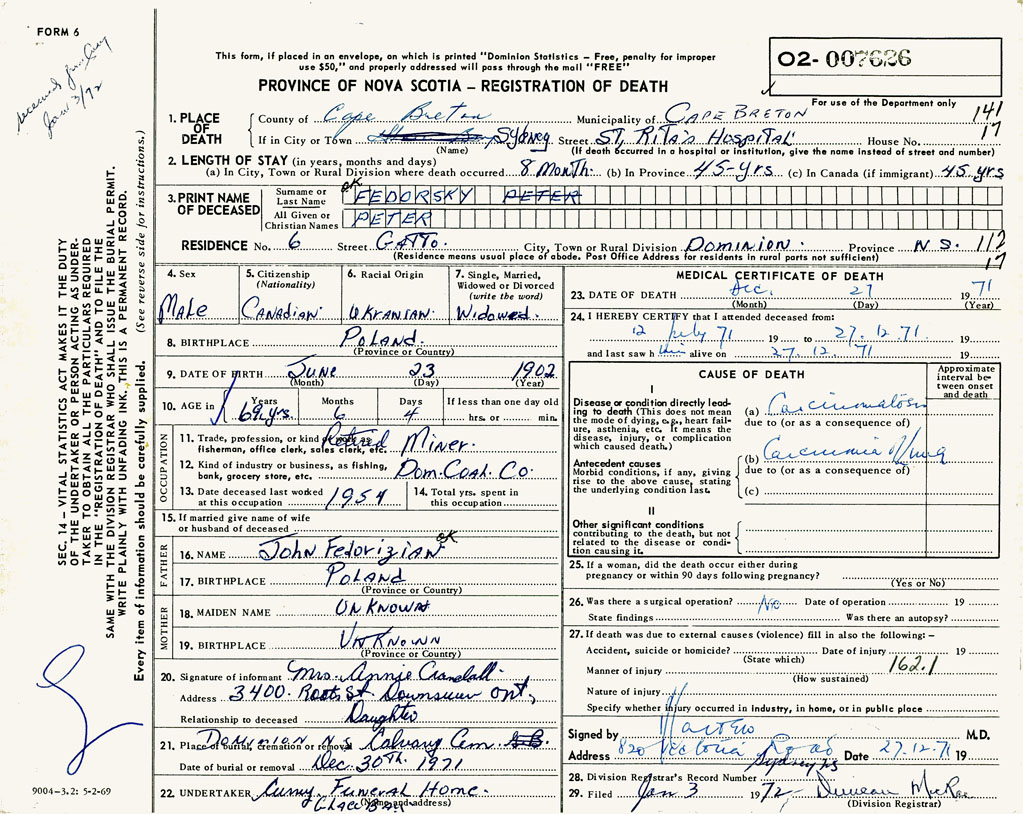 FORM 6
Jan 3/72
This form, if placed in an envelope, on which is printed "Dominion Statistics – Free, penalty for improper
use $50," and properly addressed will pass through the mail "FREE"
02-007626
PROVINCE OF NOVA SCOTIA – REGISTRATION OF DEATH
For use of the Department only
1. PLACE OF DEATH
County of Cape Breton Municipality of CAPE BRETON 141
If in City or Town Sydney Street ST, RITA'S HOSPITAL House No. 17
(Name) (If death occurred in a hospital or institution, give the name instead of street and number)
2. LENGTH OF STAY (in years, months and days)
(a) In City, Town or Rural Division where death occurred 8 Month. (b) In Province 45-yrs (c) In Canada (if immigrant) 45 yrs
3. PRINT NAME OF DECEASED
Surname or Last Name OK FEDORSKY PETER
All Given or Christian Names PETER
RESIDENCE No. 6 Street GATTO. City, Town or Rural Division DOMINION. Province N.S. 112
(Residence means usual place of abode. Post Office Address for residents in rural parts not sufficient) 17
4. Sex
Male
5. Citizenship
(Nationality)
CANADIAN
6. Racial Origin
UKRANIAN
7. Single, Married,
Widowed or Divorced
(write the word)
Widowed.
8. BIRTHPLACE POLAND.
(Province or Country)
9. DATE OF BIRTH June 23 1902
(Month) (Day) (Year)
10. AGE in Years Months Days If less than one day old
69 yrs. 6 4 hrs. or min.
OCCUPATION
11. Trade, profession, or kind of work as Retired Miner.
fisherman, office clerk, sales clerk, etc.
12. Kind of industry or business, as fishing,
bank, grocery store, etc. Dom. Coal. Co.
13. Date deceased last worked
at this occupation 1954
14. Total yrs. spent in
this occupation
15. If married give name of wife
or husband of deceased
FATHER
16. NAME John Fedorizian OK
17. BIRTHPLACE POLAND
(Province or Country)
MOTHER
18. MAIDEN NAME UNKNOWN
19. BIRTHPLACE UNKNOWN
(Province or Country)
20. Signature of informant Mrs. Annie Crandall
Address 3400. Root St Downsview Ont,
Relationship to deceased Daughter
21. Place of burial, cremation or removal DOMINION N.S. Calvary Cem.
Date of burial or removal Dec. 30th. 1971
22. UNDERTAKER Curry Funeral Home.
Glace Bay (Name and address)
MEDICAL CERTIFICATE OF DEATH
23. DATE OF DEATH Dec. 27 1971
(Month) (Day) (Year)
24. I HEREBY CERTIFY that I attended deceased from:
12 July 71 19 to 27.12.71 19
and last saw h im alive on 27.12.71 19
CAUSE OF DEATH
Approximate
interval be-
tween onset
and death
I
Disease or condition directly lead-
ing to death (This does not mean
the mode of dying, e.g., heart fail-
ure, asthenia, etc. It means the
disease, injury, or complication
which caused death.)
(a) Carcinomatosis
due to (or as a consequence of)
Antecedent causes
Morbid conditions, if any, giving
rise to the above cause, stating
the underlying condition last.
(b) Carcinoma Lung
due to (or as a consequence of)
(c)
II
Other significant conditions
contributing to the death, but not
related to the disease or condi-
tion causing it.
25. If a woman, did the death occur either during
pregnancy or within 90 days following pregnancy?
(Yes or No)
26. Was there a surgical operation? No Date of operation 19
State findings Was there an autopsy?
27. If death was due to external causes (violence) fill in also the following: –
Accident, suicide or homicide? Date of injury 19
(State which) 162.1
Manner of injury
(How sustained)
Nature of injury
Specify whether injury occurred in industry, in home, or in public place
Signed by M.D.
Address 820 Victoria Road Date 27.12.71 19
Sydney NS
28. Division Registrar's Record Number
29. Filed Jan 3 1972 Duncan McRae
(Division Registrar)
SEC. 14 – VITAL STATISTICS ACT MAKES IT THE DUTY
OF THE UNDERTAKER OR PERSON ACTING AS UNDER-
TAKER TO OBTAIN ALL THE PARTICULARS REQUIRED
IN THE "REGISTRATION OF DEATH" AND TO FILE THE
SAME WITH THE DIVISION REGISTRAR WHO SHALL ISSUE THE BURIAL PERMIT.
WRITE PLAINLY WITH UNFADING INK. THIS IS A PERMANENT RECORD.
Every item of information should be carefully supplied. (See reverse side for instructions.)
9004-3.2: 5-2-69